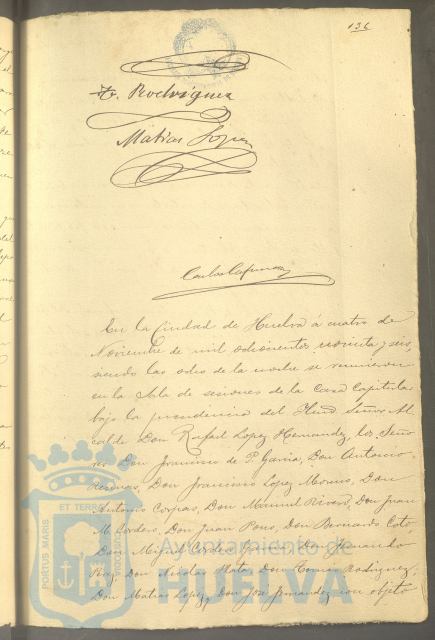 136
F. Rodriguez
Matias Lopez
En la Ciudad de Huelva á cuatro de
Noviembre de mil ochocientos noventa y seis,
siendo las ocho de la noche se reunieron
en la Sala de sesiones de la Casa Capitular
bajo la presidencia del Ilmo. Señor Al
calde Don Rafael Lopez Hernandez, los Seño
res Don Francisco de P. Garcia, Don Antonio
Don Francisco Lopez Moreno, Don
Antonio Corpas, Don Manuel Rivero, Don Juan
M. Cordero, Don Juan Pons, Don Bernardo Cotó,
Don Miguel Cordero, Don Fernando
Rey, Don Nicolas Mata, Don Tomás Rodriguez,
Don Matias Lopez, Don José Fernandez con objeto
PORTUS MARIS ET TERRÆ CUSTODIA
Ayuntamiento de
HUELVA